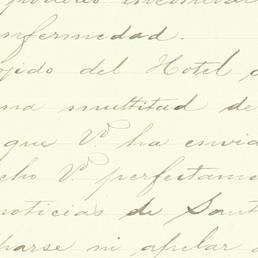 enfermedad.
ojido del Hotel
una multitud de
que V.d ha envia
cho V.d perfectame
noticias de Sant
parse ni apelar a